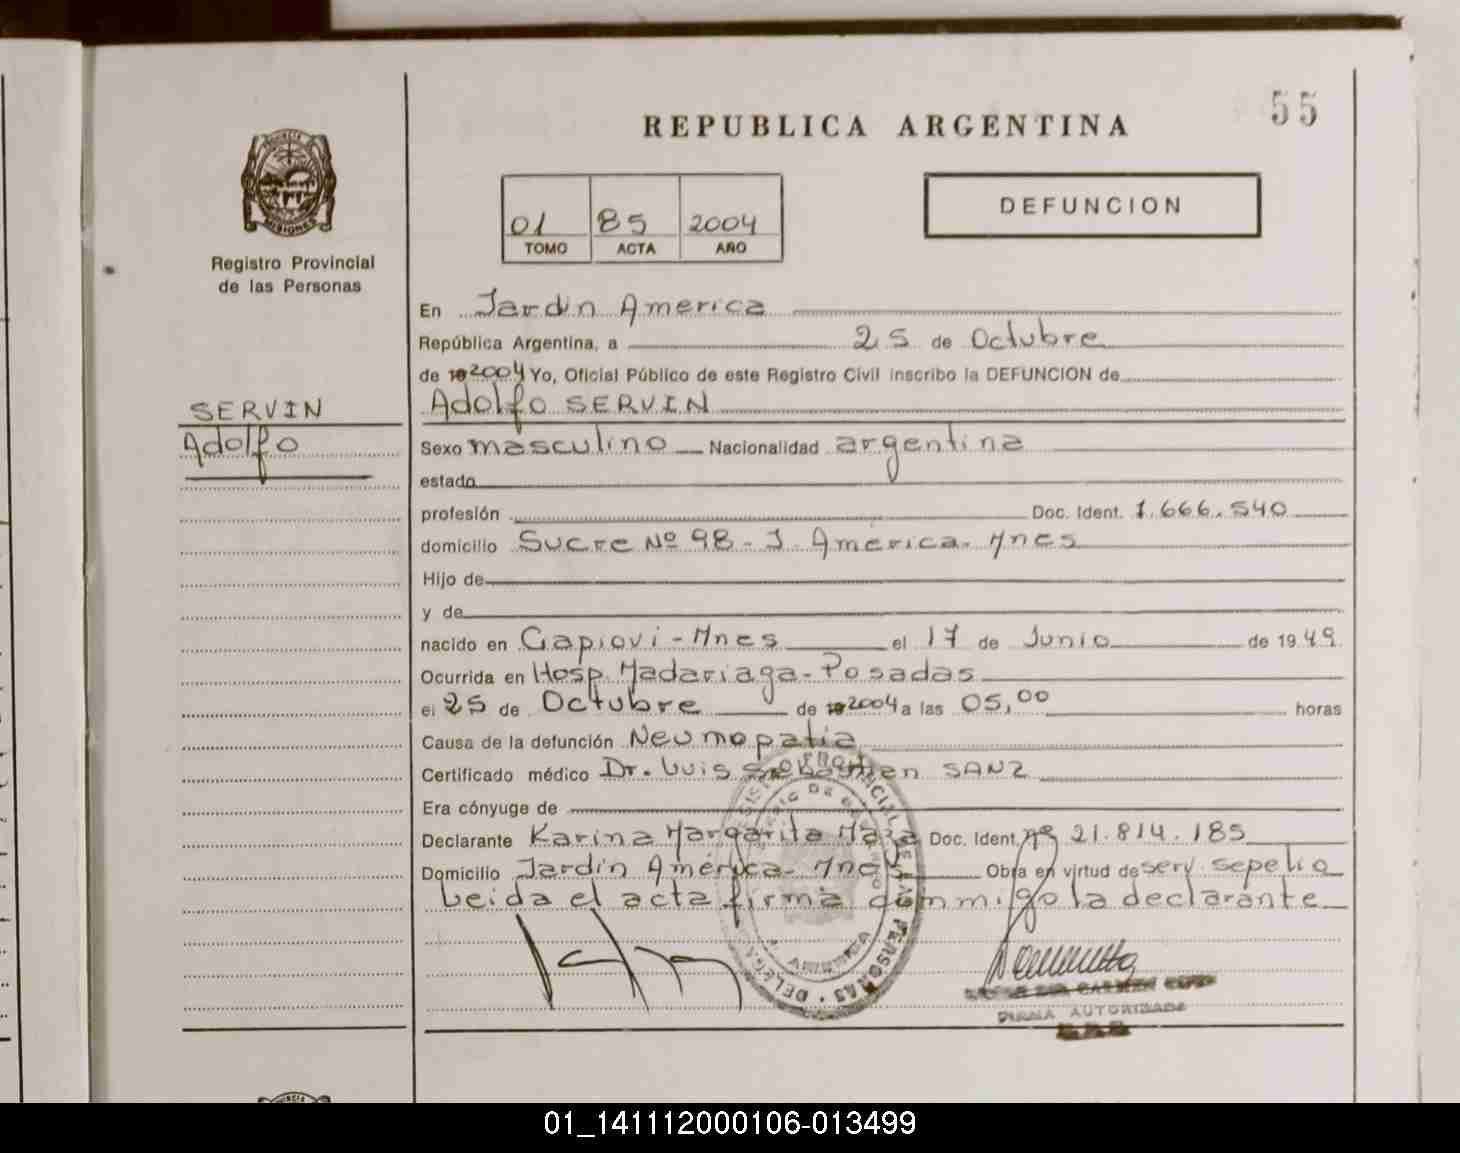 55
REPUBLICA ARGENTINA
PROVINCIA
MISIONES
Registro Provincial
de las Personas
01 85 2004
TOMO ACTA AÑO
DEFUNCION
En Jardin America
República Argentina, a 25 de Octubre
de 192004 Yo, Oficial Público de este Registro Civil inscribo la DEFUNCION de
SERVIN
Adolfo
Adolfo SERVIN
Sexo masculino Nacionalidad argentina
estado
profesión Doc. Ident. 1.666.540
domicilio Sucre Nº 98 - J. America - Mnes
Hijo de
y de
nacido en Capiovi - Mnes el 17 de Junio de 1949.
Ocurrida en Hosp. Madariaga - Posadas
el 25 de Octubre de 192004 a las 05,00 horas
Causa de la defunción Neumopatia
Certificado médico Dr. Luis Sebastien SANZ
Era cónyuge de
Declarante Karina Margarita Doc. Ident. Nº 21.814.185
Domicilio Jardín América - Mnes Obra en virtud de serv. sepelio
Leida el acta firma conmigo la declarante
PERSONAS
AUTORIZADA
01_141112000106-013499